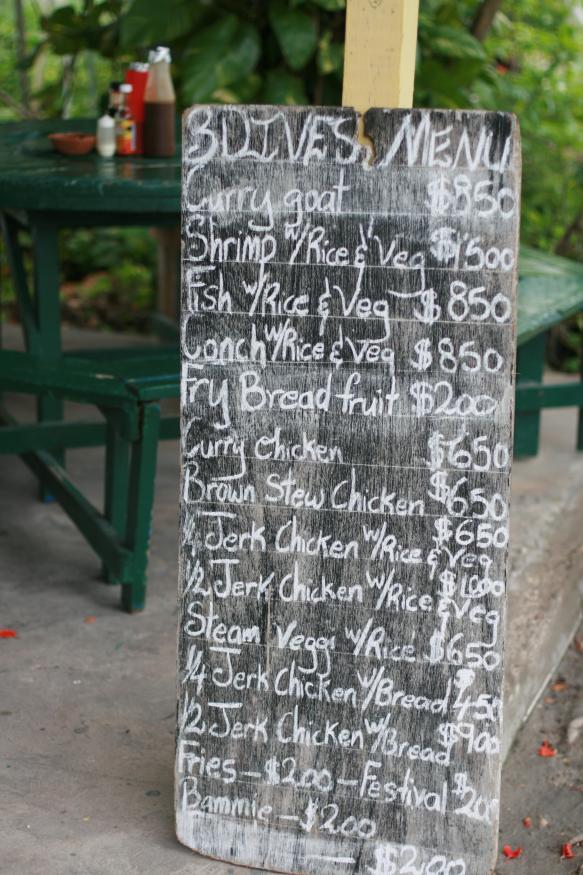 3 DIVES MENU
Curry goat $850
Shrimp w/Rice & Veg $1500
Fish w/Rice & Veg $850
Conch w/Rice & Veg $850
Fry Bread fruit $200
Curry Chicken $650
Brown Stew Chicken $650
1/4 Jerk Chicken w/Rice & Veg $650
1/2 Jerk Chicken w/Rice & Veg $1000
Steam Veggi w/Rice $650
1/4 Jerk Chicken w/Bread $450
1/2 Jerk Chicken w/Bread $900
Fries - $200 - Festival $200
Bammie - $200
— $200